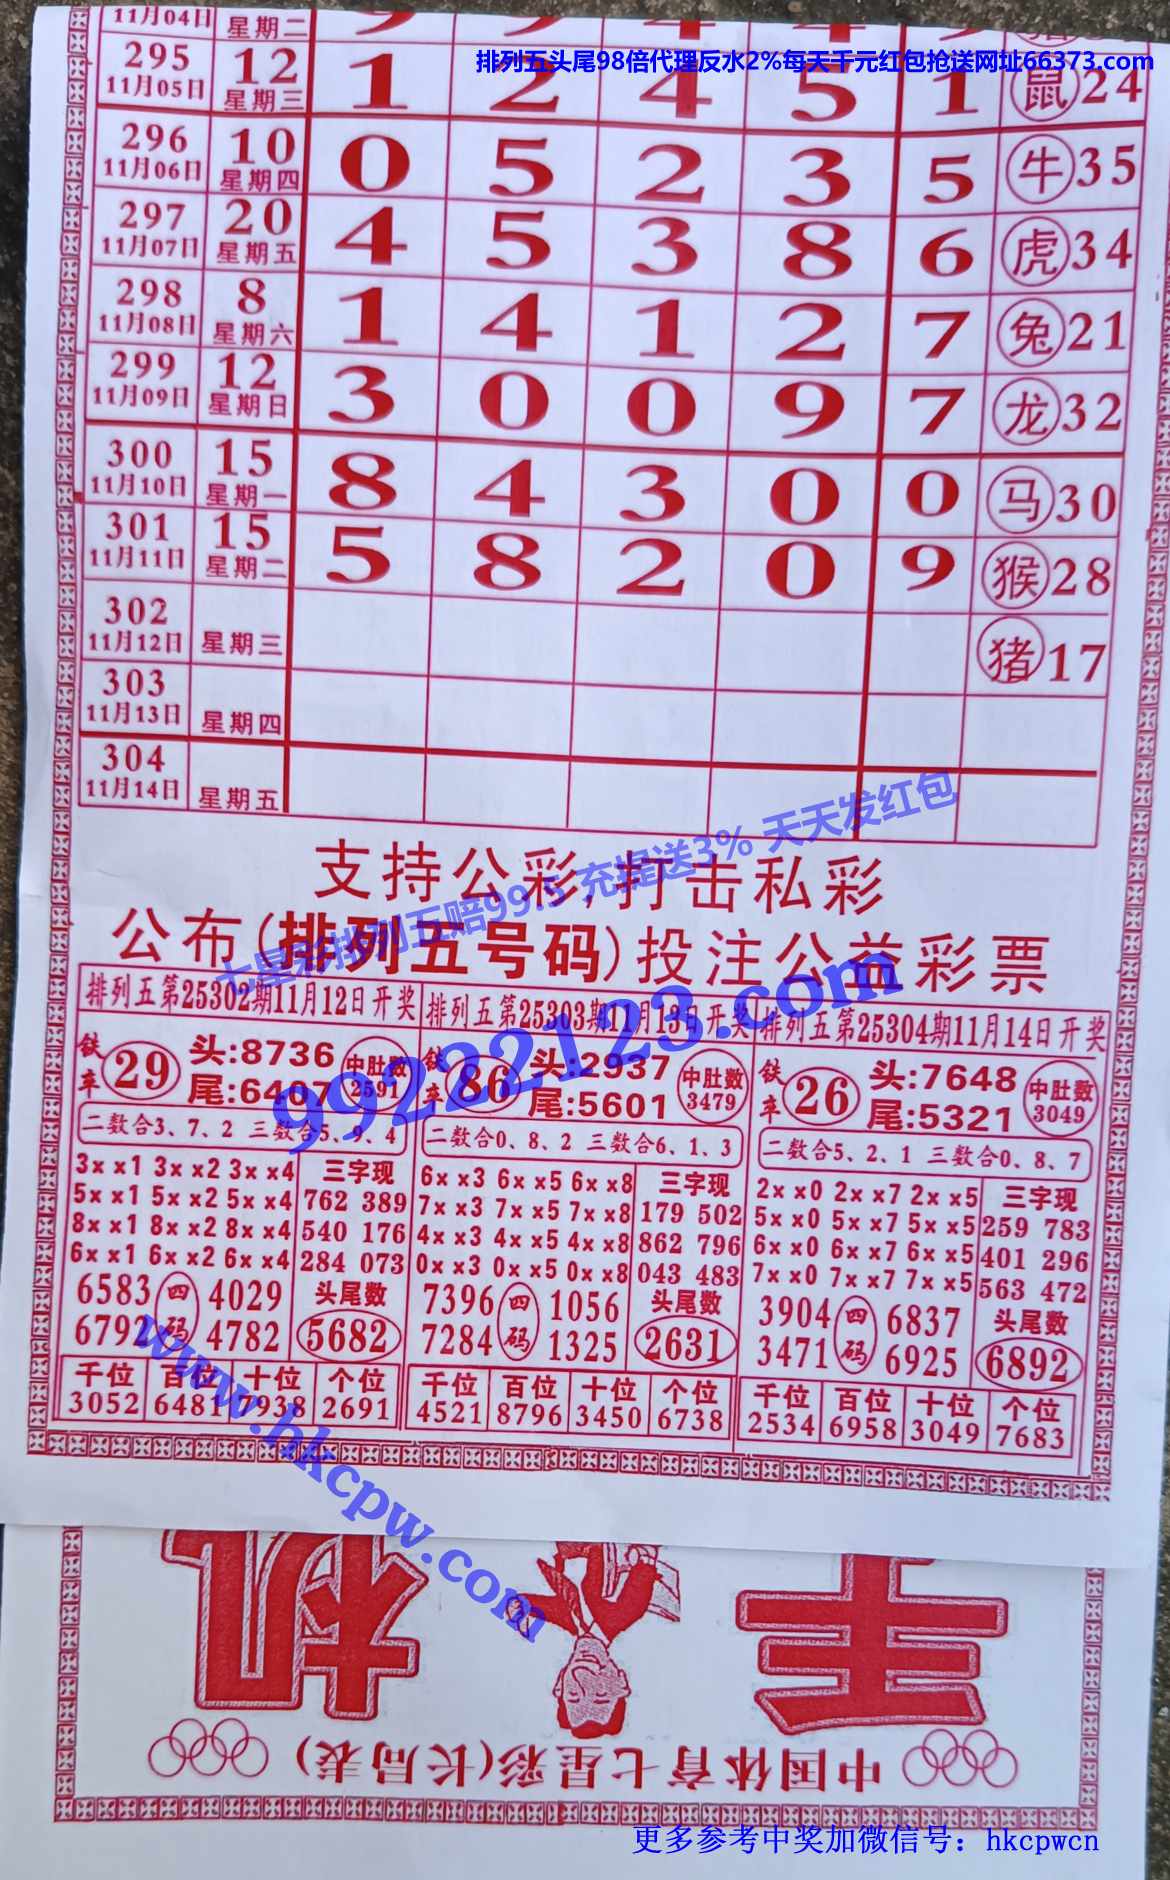 11月04日 星期二
排列五头尾98倍代理反水2%每天千元红包抢送网址66373.com
295 11月05日 12 星期三 1 2 4 5 1 鼠24
296 11月06日 10 星期四 0 5 2 3 5 牛35
297 11月07日 20 星期五 4 5 3 8 6 虎34
298 11月08日 8 星期六 1 4 1 2 7 兔21
299 11月09日 12 星期日 3 0 0 9 7 龙32
300 11月10日 15 星期一 8 4 3 0 0 马30
301 11月11日 15 星期二 5 8 2 0 9 猴28
302 11月12日 星期三 猪17
303 11月13日 星期四
304 11月14日 星期五
支持公彩,打击私彩
七星彩排列五赔99.5 充提送3% 天天发红包
公布(排列五号码)投注公益彩票
99222123.com
排列五第25302期11月12日开奖
铁率 29 头:8736 尾:6407 中肚数 2591
二数合3、7、2 三数合5、9、4
3××1 3××2 3××4
5××1 5××2 5××4
8××1 8××2 8××4
6××1 6××2 6××4
三字现
762 389
540 176
284 073
6583 四码 4029
6792 4782
头尾数
5682
千位 百位 十位 个位
3052 6481 7938 2691
排列五第25303期11月13日开奖
铁率 86 头:2937 尾:5601 中肚数 3479
二数合0、8、2 三数合6、1、3
6××3 6××5 6××8
7××3 7××5 7××8
4××3 4××5 4××8
0××3 0××5 0××8
三字现
179 502
862 796
043 483
7396 四码 1056
7284 1325
头尾数
2631
千位 百位 十位 个位
4521 8796 3450 6738
排列五第25304期11月14日开奖
铁率 26 头:7648 尾:5321 中肚数 3049
二数合5、2、1 三数合0、8、7
2××0 2××7 2××5
5××0 5××7 5××5
6××0 6××7 6××5
7××0 7××7 7××5
三字现
259 783
401 296
563 472
3904 四码 6837
3471 6925
头尾数
6892
千位 百位 十位 个位
2534 6958 3049 7683
www.hkcpw.com
中国体育七星彩(长局表)
更多参考中奖加微信号：hkcpwcn